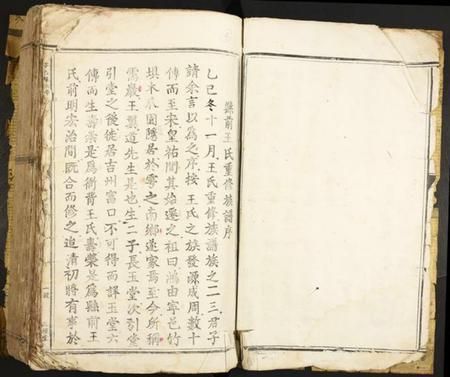 前王氏重修族譜序
乙巳冬十一月王氏重修族譜族之二三君子
請余言以為之序按王氏之族發源成周數十
傳而至宋皇祐間其始遷之祖曰鴻由寧邑竹
坝木瓜園隱居於雩之南鄉遂家焉至今所稱
雩嚴王翼道先生是也生二子長玉堂次引堂
引堂之後徙居吉州富口不可得而詳玉堂六
傳而生壽榮是為衙背王氏壽榮為前王
氏前明宏治間既合而修之迨清初將有事於